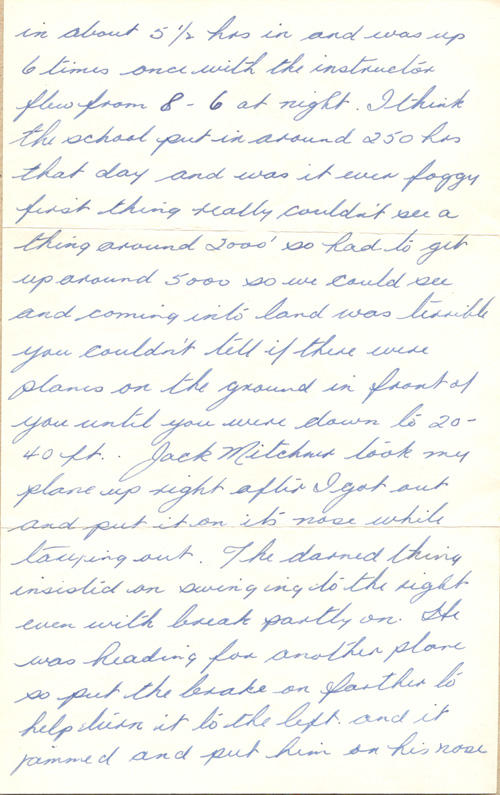 in about 5 1/2 hrs in and was up
6 times once with the instructor
flew from 8 - 6 at night. I think
the school put in around 250 hrs
that day and was it ever foggy
first thing really couldn't see a
thing around 2000' so had to get
up around 5000 so we could see
and coming into land was terrible
you couldn't tell if there were
planes on the ground in front of
you until you were down to 20-
40 ft.. Jack Mitchner took my
plane up right after I got out
and put it on it's nose while
taxying out. The darned thing
insisted on swinging to the right
even with break partly on. He
was heading for another plane
so put the brake on farther to
help turn it to the left. and it
jammed and put him on his nose